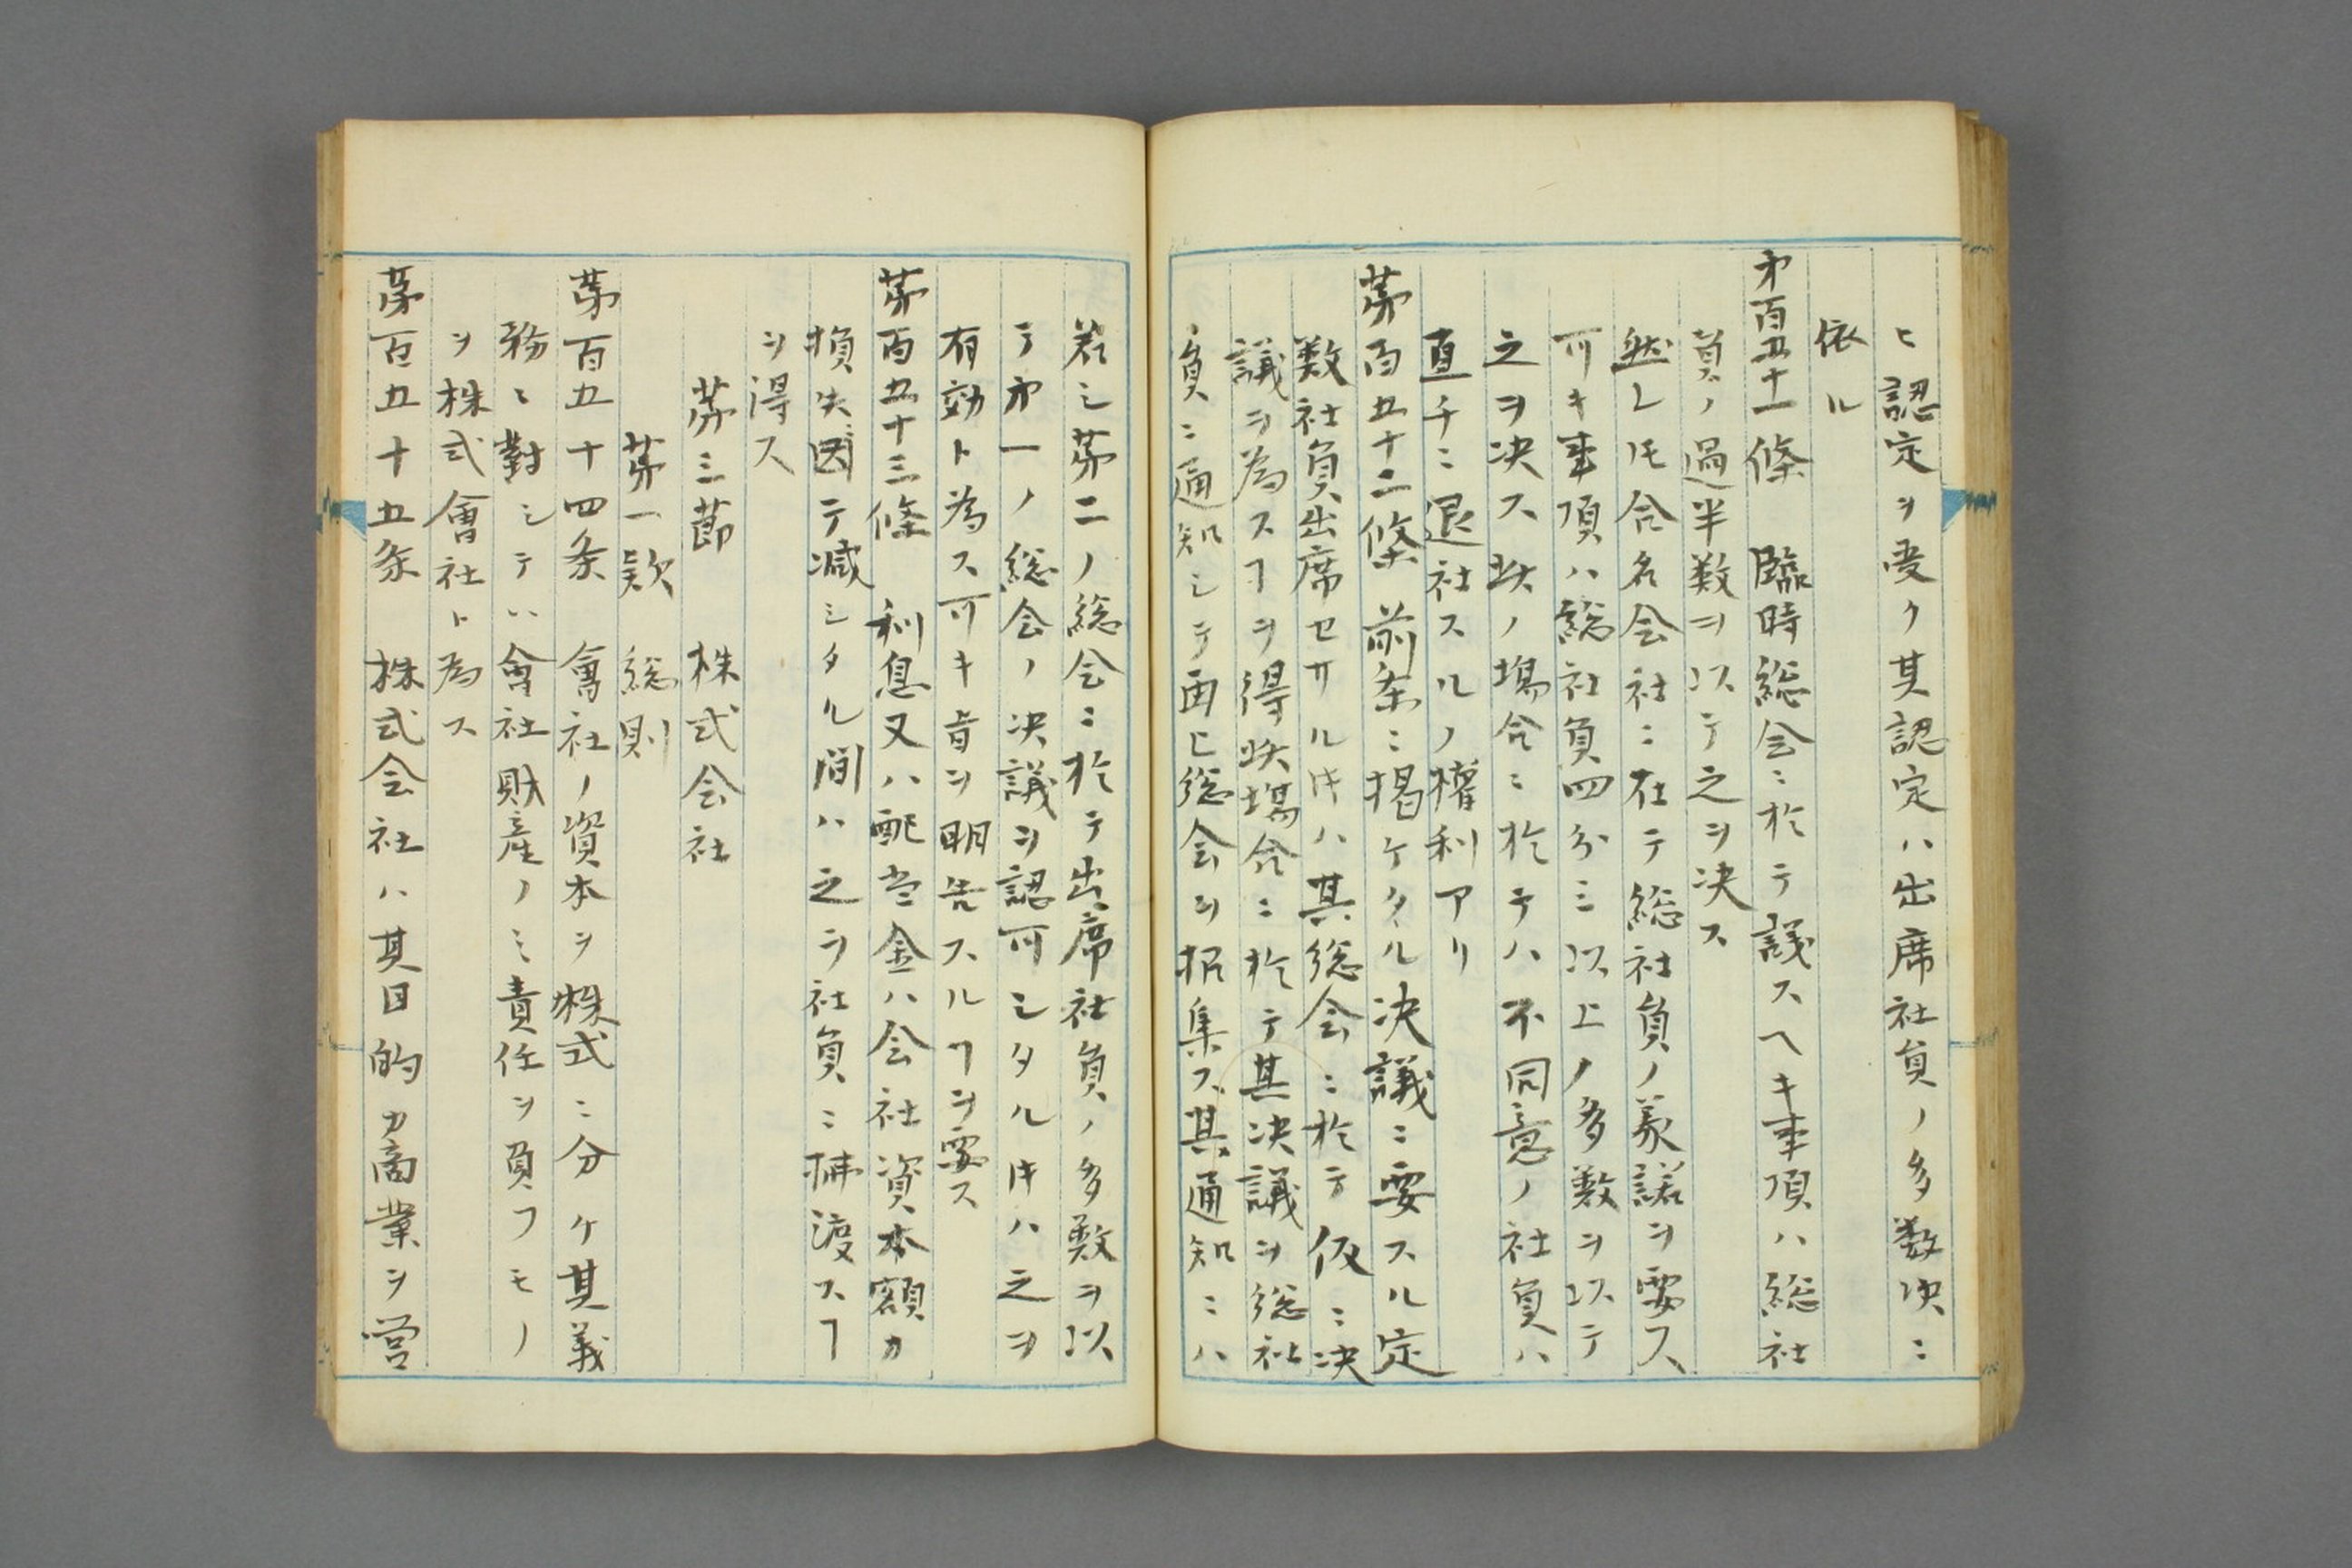 ヒ認定ヲ受ク其認定ハ出席社員ノ多数决ニ
依ル
才百五十一條　臨時総会ニ於テ議スヘキ事項ハ総社
員ノ過半数ヲ以テ之ヲ决ス
然レ𪜈合名会社ニ在テ総社員ノ承諾ヲ要ス
可キ事項ハ総社員四分三以上ノ多数ヲ以テ
之ヲ决ス此ノ塲合ニ於テハ不同意ノ社員ハ
直チニ退社スルノ權利アリ
苐百五十二條　前条ニ掲ケタル决議ニ要スル定
数社員出席セサルㇳキハ其総会ニ於テ仮ニ决
議ヲ為スヿヲ得此塲合ニ於テ其决議ヲ総社
員ニ通知シテ再ヒ総会ヲ招集ス其通知ニハ
若シ苐二ノ総会ニ於テ出席社員ノ多数ヲ以
テ才一ノ総会ノ决議ヲ認可シタルㇳキハ之ヲ
有効ト為ス可キ旨ヲ明告スルヿヲ要ス
苐百五十三條　利息又ハ配当金ハ会社資本額カ
損失因テ减シタル間ハ之ヲ社員ニ拂渡スヿ
ヲ得ス
苐三節　株式会社
苐一欵　総則
苐百五十四条　會社ノ資本ヲ株式ニ分ケ其義
務ニ對シテハ會社財産ノミ責任ヲ負フモノ
ヲ株式會社ト為ス
苐百五十五条　株式会社ハ其目的カ商業ヲ営